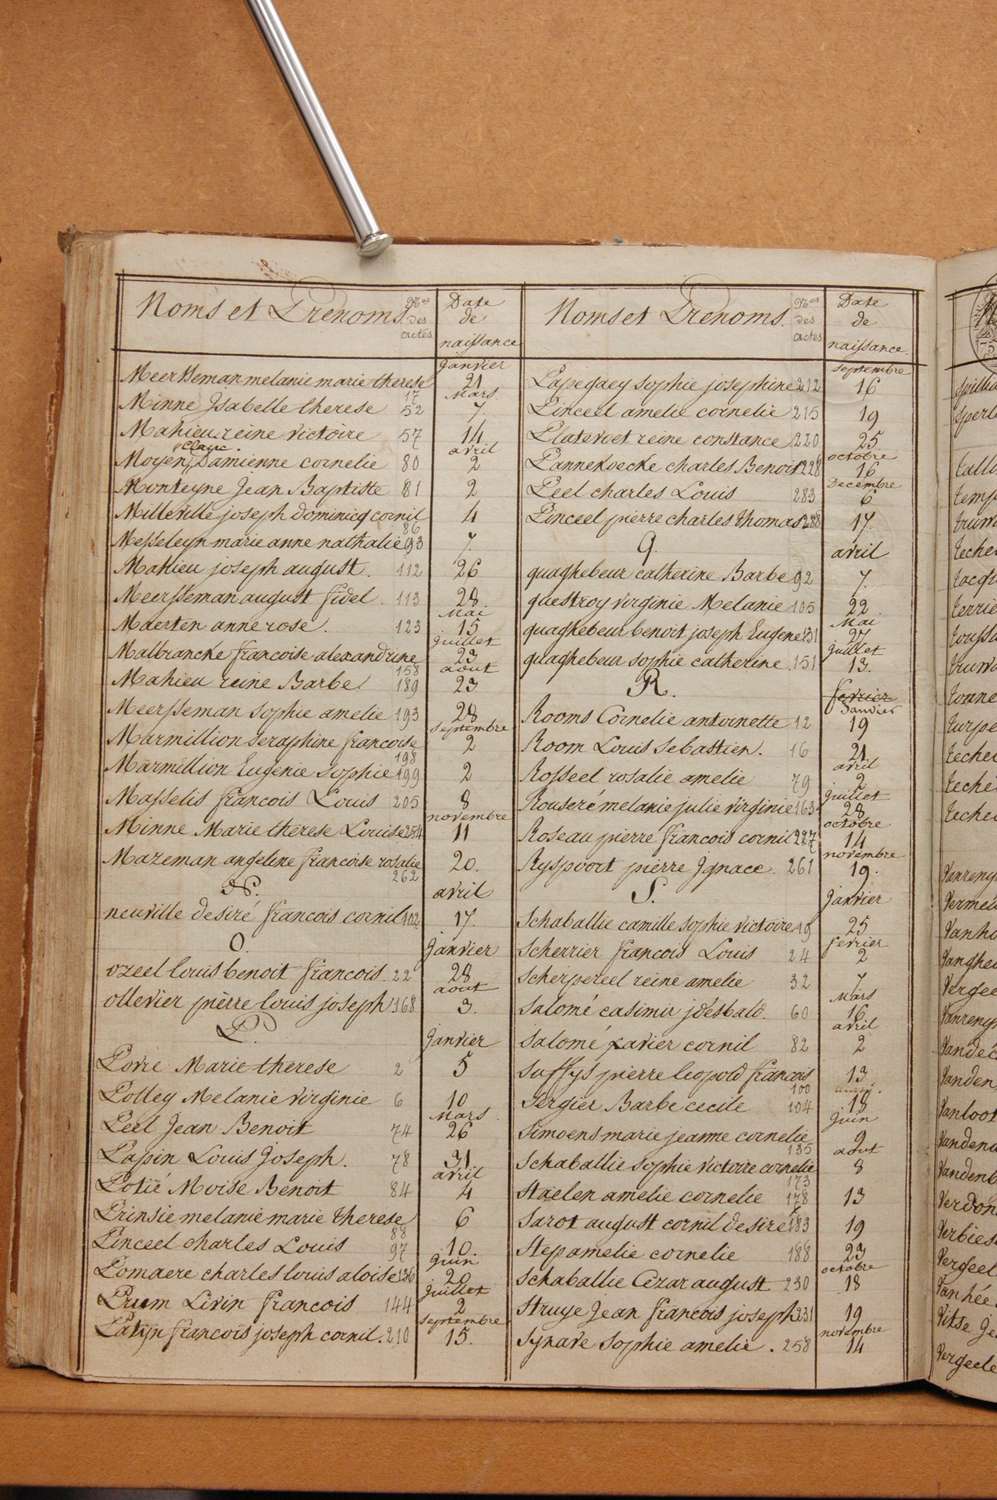 Noms et Prenoms. Nos des actes Date de naissance
janvier
Meersseman melanie marie therese 17 21
Mars
Minne Isabelle therese 52 7
Mahieu reine victoire 57 14
avril
Moyen Damienne cornelie 80 2
Monteyne Jean Baptiste 81 2
Milleville joseph dominicq cornil 86 4
Messeleyn marie anne nathalie 93 7.
Mahieu joseph august. 112 26
Meersseman august fidel. 113 28
Mai
Maerten anne rose. 123 15
juillet
Malbrancke francoise alexandrine 158 23
aout
Mahieu reine Barbe 189 23
Meersseman sophie amelie 193 28
septembre
Marmillion seraphine francoise 198 2
Marmillion Eugenie sophie 199 2
Masselis francois Louis 205 8
novembre
Minne Marie therese Louise 254 11
Mazeman angeline francoise rosalie 262 20.
N. avril
neuville desiré francois cornil 102 17.
O. janvier
ozeel louis benoit francois 22 28
aout
ollevier pierre louis joseph 168 3.
P. janvier
Povre Marie therese 2 5
Polley Melanie virginie 6 10
Mars
Peel Jean Benoit 74 26
Papin Louis Joseph. 78 31
avril
Potié Moise Benoit 84 4
Prinsie melanie marie therese 88 6
Pinceel charles Louis 97 10.
juin
Pomaere charles louis aloise 136 20
juillet
Pruem Livin francois 144 2
septembre
Patijn francois joseph cornil. 210 15.
Noms et Prenoms. Nos des actes Date de naissance.
septembre
Papegaey sophie josephine 212 16
Pinceel amelie cornelie 215 19
Platevoet reine constance 220 25
octobre
Pannekoecke charles Benoit 228 16
Decembre
Peel charles Louis 283 6
Pinceel pierre charles thomas 288 17.
Q. avril
quaghebeur catherine Barbe 92 7.
questroy virginie Melanie 105 22.
Mai
quaghebeur benoit joseph Eugene 131 27
juillet
quaghebeur sophie catherine 151 13.
R. fevrier
Janvier
Rooms Cornelie antoinette 12 19
Room Louis Sebastien. 16 21
avril
Rosseel rosalie amelie 79 2
juillet
Rouseré melanie julie virginie 163 28
octobre
Roseau pierre francois cornil 227 14
novembre
Ryspoort pierre Ignace. 261 19.
S. janvier
Schaballie camille sophie victoire 19 25
fevrier
Scherrier francois Louis 24 2
Scherpereel reine amelie 32 7
Mars
Salomé casimir jdesbald 60 16
avril
Salomé xavier cornil 82 2
Saffys pierre leopold francois 100 13
Sergier Barbe cecile 104 18
juin
Simoens marie jeanne cornelie 135 9
aout
Schaballie sophie victoire cornelie 173 8
Staelen amelie cornelie 178 13
Sarot august cornil desire 183 19
Step amelie cornelie 188 23
octobre
Schaballie Cezar august 230 18
Struye Jean francois joseph 231 19
novembre
Synave Sophie amelie. 258 14